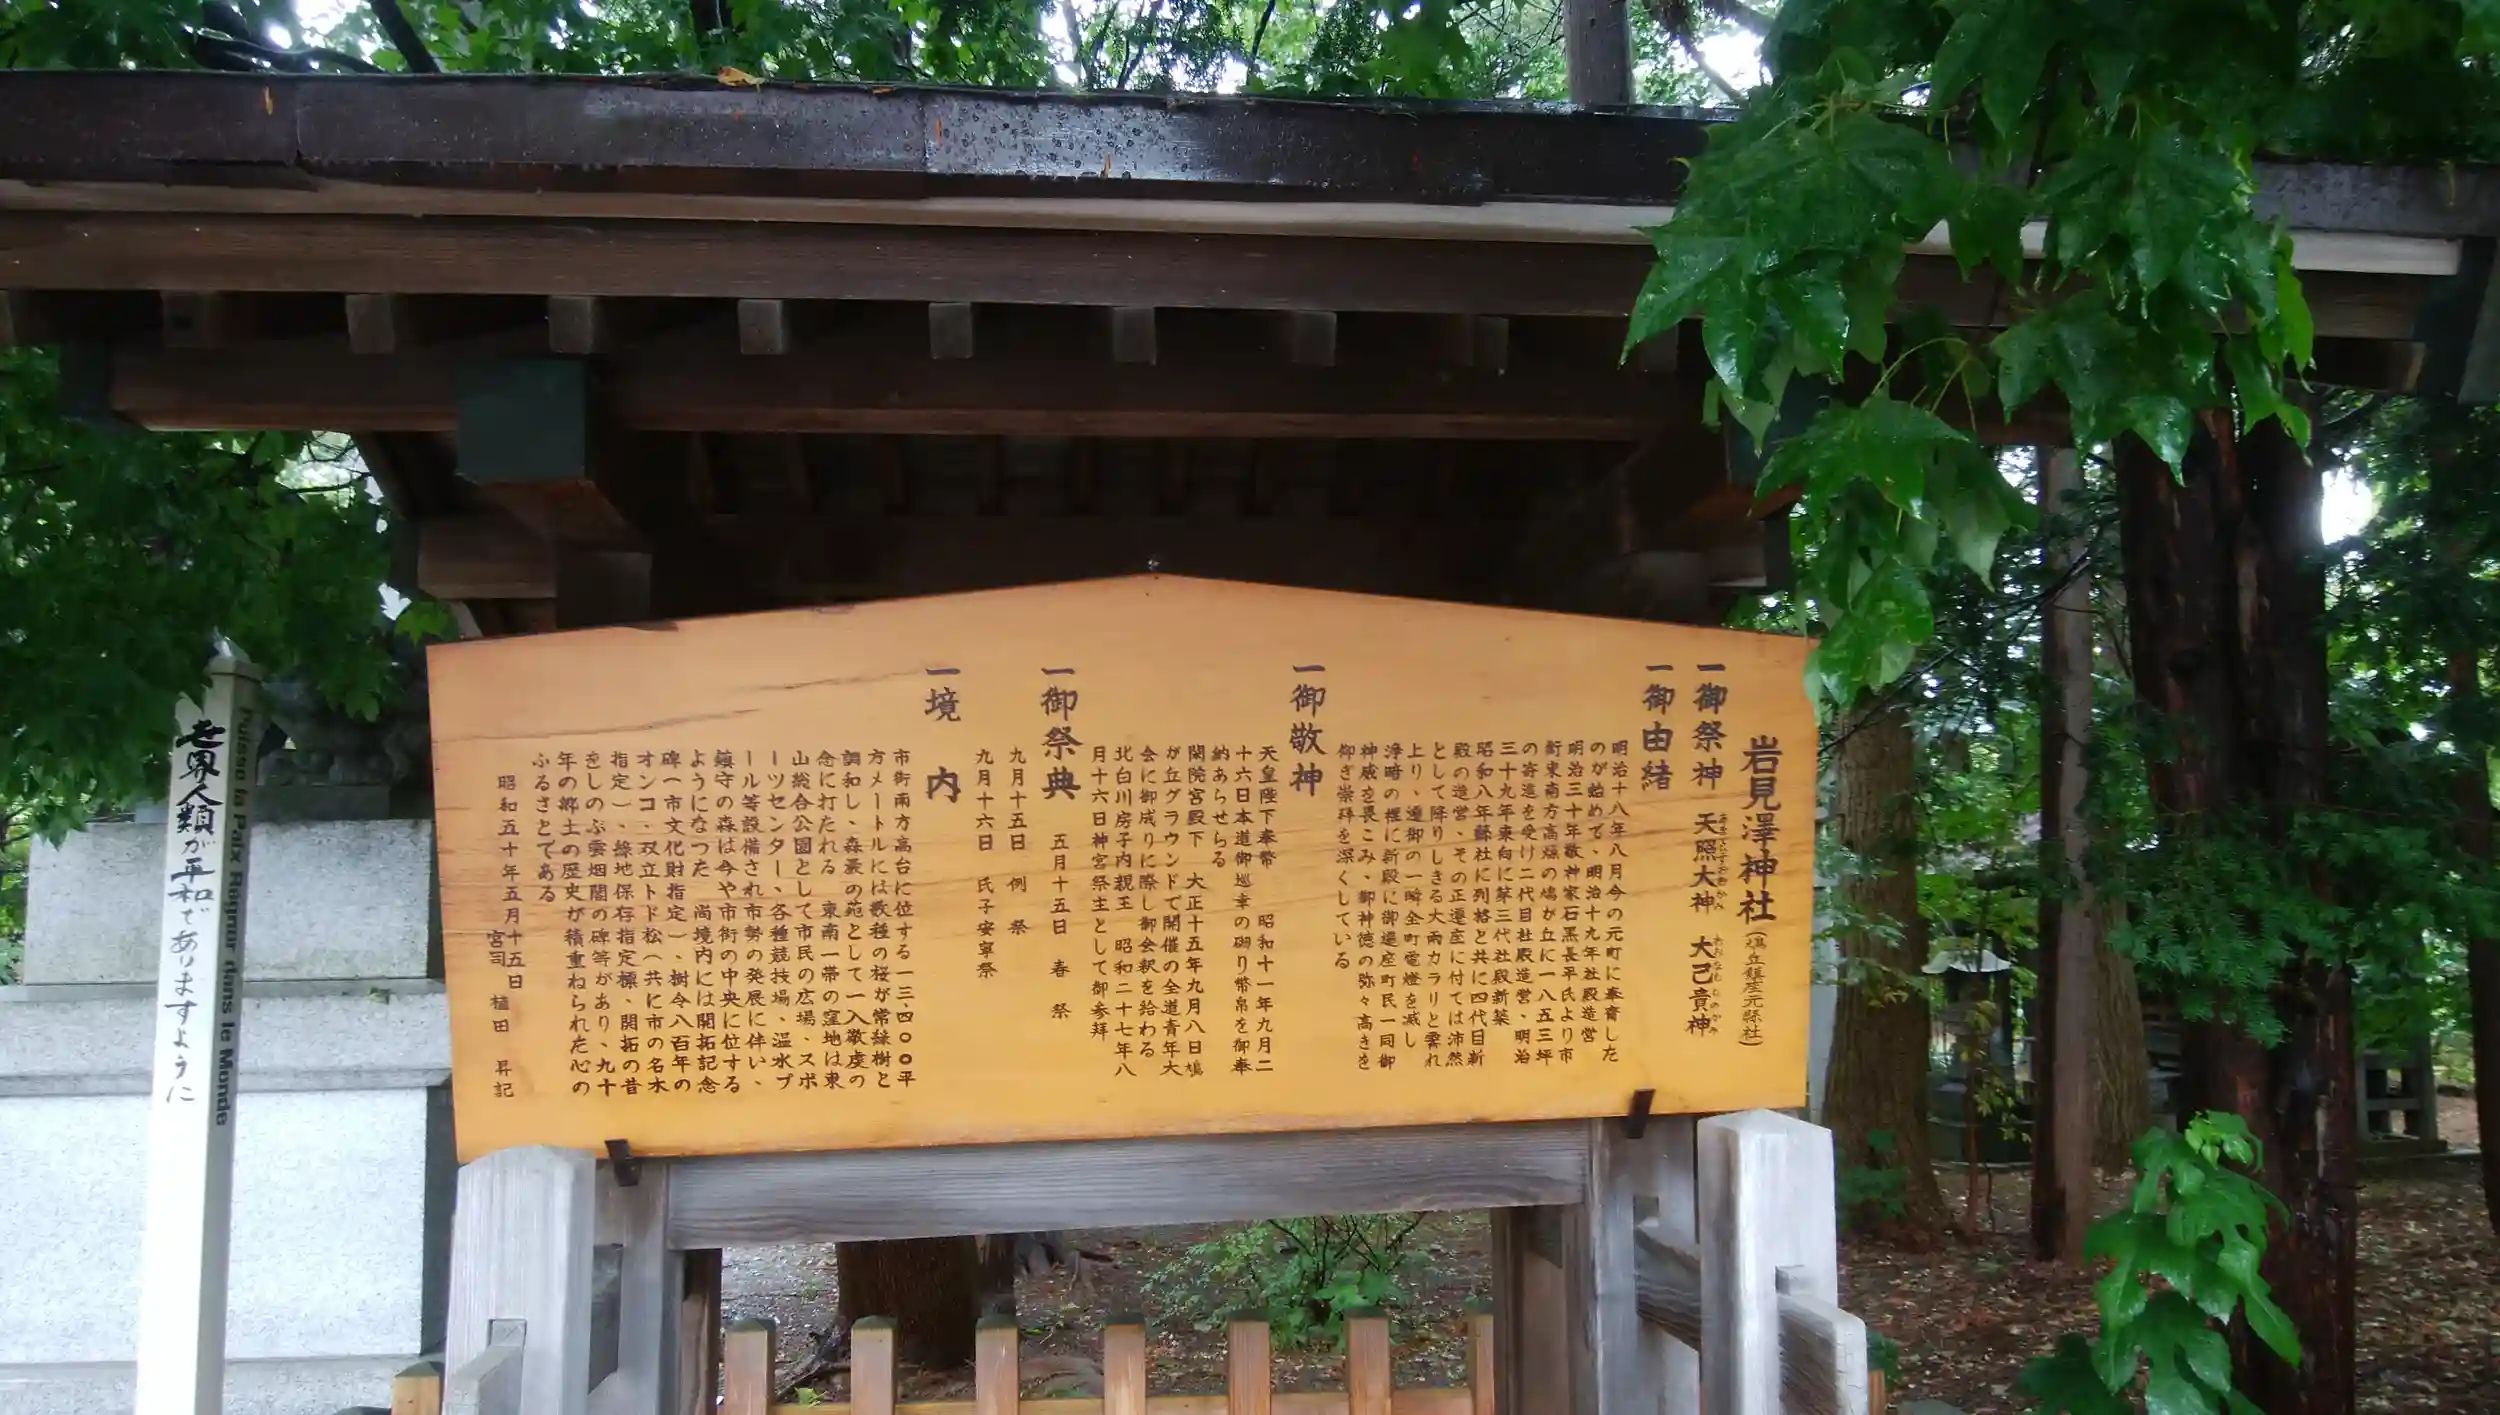 岩見澤神社(鳩が丘鎮座元縣社)
一御祭神 天照大神 大己貴神
あまてらすおおかみ おおなむちのかみ
一御由緒
明治十八年八月今の元町に奉斎した
のが始めで、明治十九年社殿造営
明治三十年敬神家石黒長平氏より市
街東南方高燥の鳩が丘に一八五三坪
の寄進を受け二代目社殿造営、明治
三十九年東向に第三代社殿新築
昭和八年縣社に列格と共に四代目新
殿の造営、その正遷座に付ては沛然
として降りしきる大雨カラリと霽れ
上り、遷御の一瞬全町電燈を滅し
浄暗の裡に新殿に御遷座町民一同御
神威を畏こみ、御神徳の弥々高きを
仰ぎ崇拝を深くしている
一御敬神
天皇陛下奉幣 昭和十一年九月二
十六日本道御巡幸の砌り幣帛を御奉
納あらせらる
閑院宮殿下 大正十五年九月八日鳩
が丘グラウンドで開催の全道青年大
会に御成りに際し御会釈を給わる
北白川房子内親王 昭和二十七年八
月十六日神宮祭主として御参拝
一御祭典
五月十五日 春 祭
九月十五日 例 祭
九月十六日 氏子安寧祭
一境 内
市街南方高台に位する一三、四〇〇平
方メートルには数種の桜が常緑樹と
調和し、森厳の苑として一入敬虔の
念に打たれる 東南一帯の窪地は東
山総合公園として市民の広場、スポ
ーツセンター、各種競技場、温水プ
ール等設備され市勢の発展に伴い、
鎮守の森は今や市街の中央に位する
ようになつた 尚境内には開拓記念
碑(市文化財指定)、樹令八百年の
オンコ、双立トド松(共に市の名木
指定)、緑地保存指定標、開拓の昔
をしのぶ雲烟閣の碑等があり、九十
年の郷土の歴史が積重ねられた心の
ふるさとである
昭和五十年五月十五日
宮司 植田 昇記
世界人類が平和でありますように
Puisse la Paix Régner dans le Monde